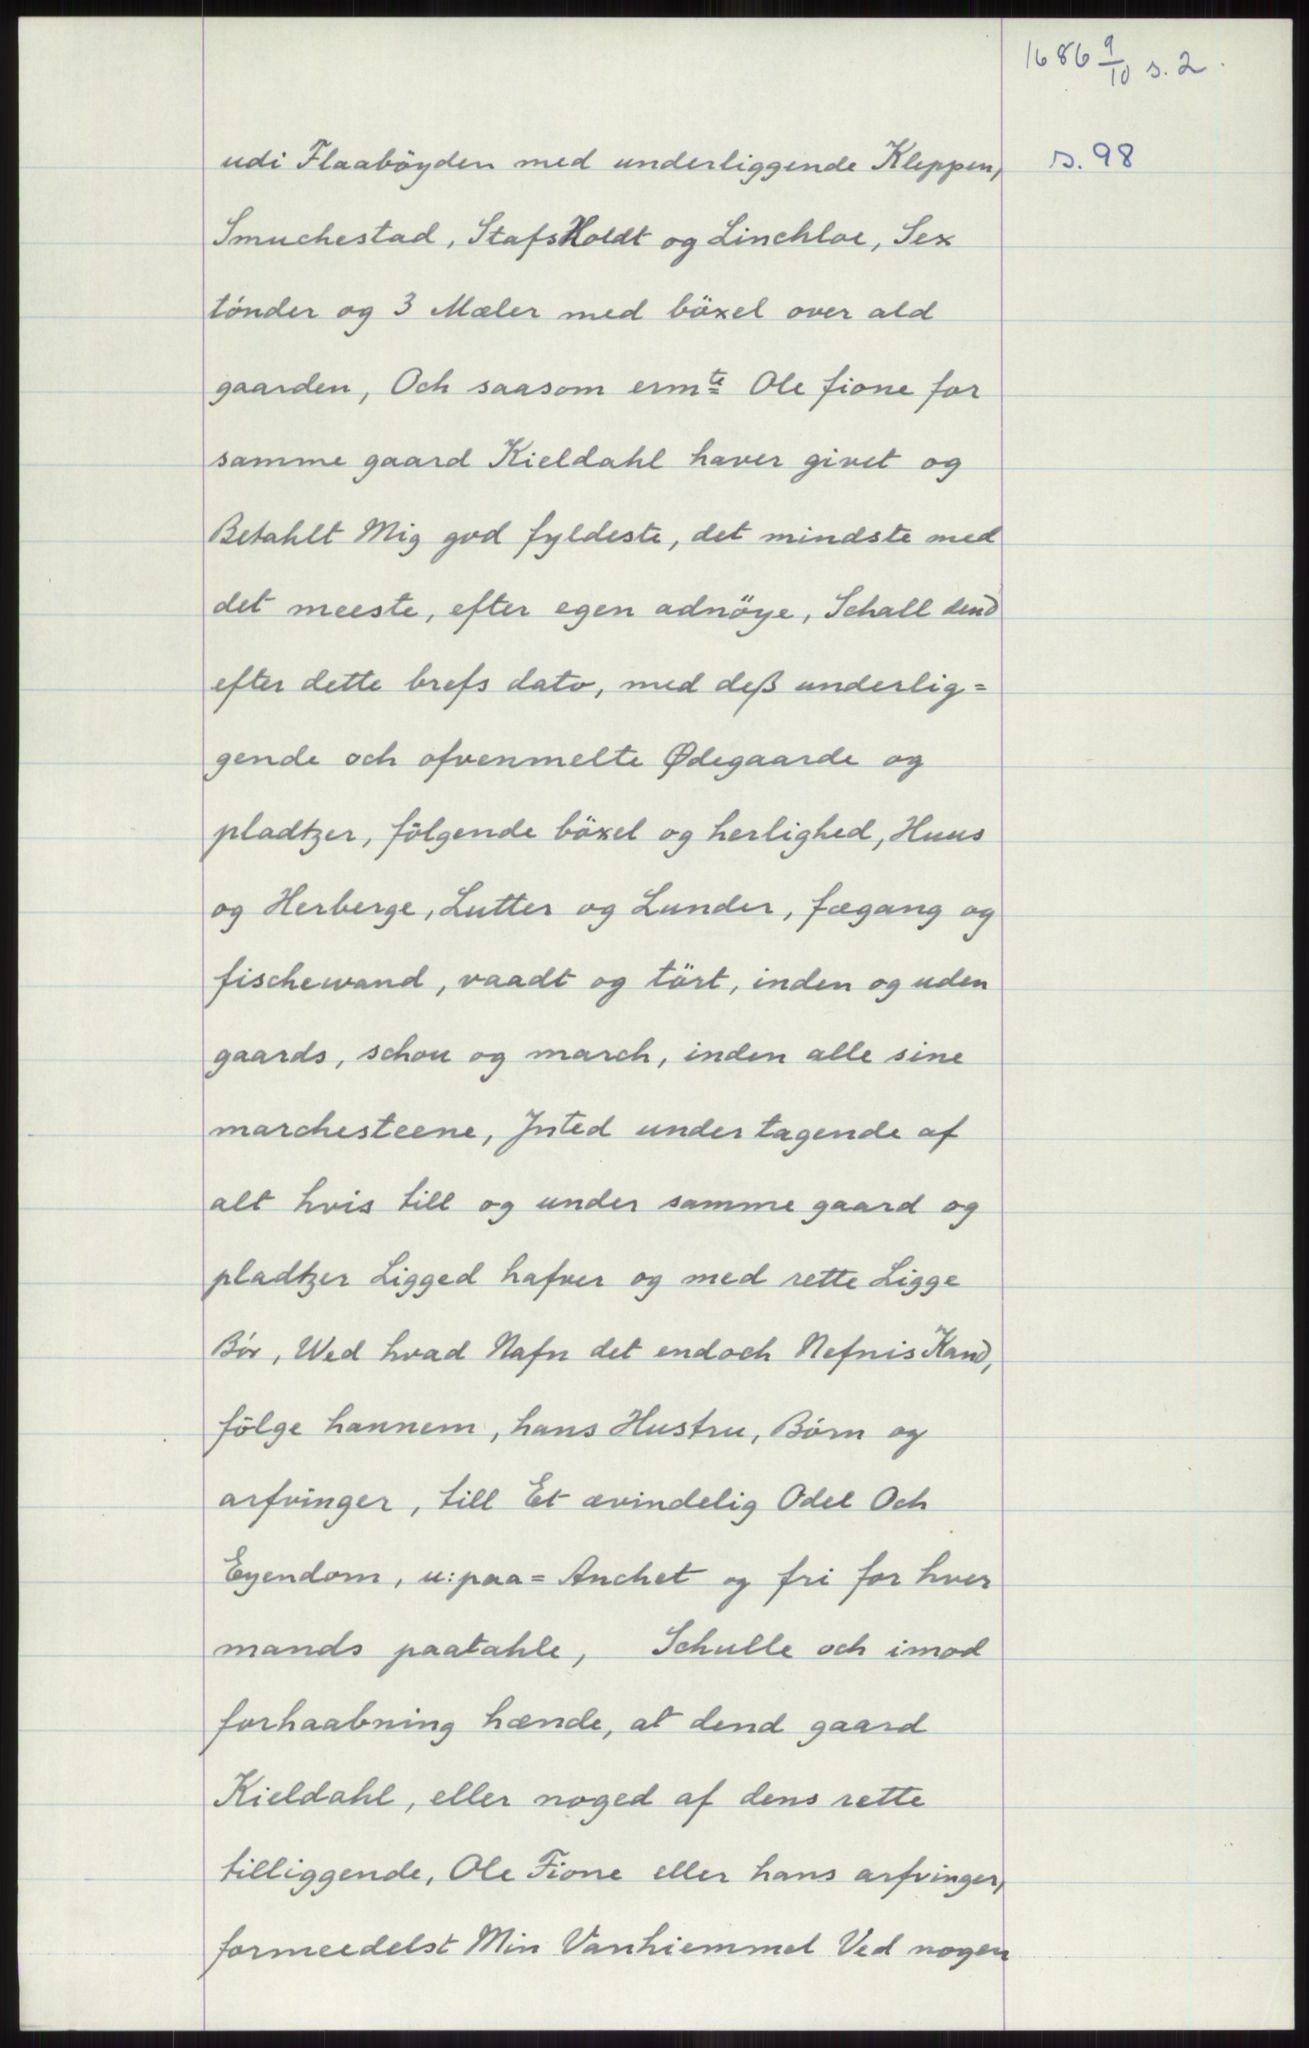 1686 9/10 s. 2.
udi Flaabøyden med underliggende Kleppen,
s. 98
Smuchestad, StafsHoldt og Linchloe, Sex
tónder og 3 Mæler med böxel over ald
gaarden, Och saasom ermte Ole fione for
samme gaard Kieldahl haver givet og
Betahlt Mig god fyldeste, det mindste med
det meeste, efter egen adnöye, Schall dend
efter dette brefs dato, med deß underlig=
gende och ofvenmelte Ødegaarde og
pladtzer, fölgende böxel og herlighed, Huus
og Herberge, Lutter og Lunder, fægang og
fischewand, vaadt og tört, inden og uden
gaards, schou og march, inden alle sine
marchesteene, Jnted undertagende af
alt hvis till og under samme gaard og
pladtzer Ligged hafver og med rette Ligge
Bór, Wed hvad Nafn det endoch Nefnis Kand,
fölge hannem, hans Hustru, Børn og
arfvinger, till Et ævindelig Odel Och
Eyendom, u:paa=Anchet og fri for hver
mands paatahle, Schulle och imod
forhaabning hænde, at dend gaard
Kieldahl, eller noged af dens rette
tilliggende, Ole Fione eller hans arfvinger,
formeedelst Min Vanhiemmel Ved nogen